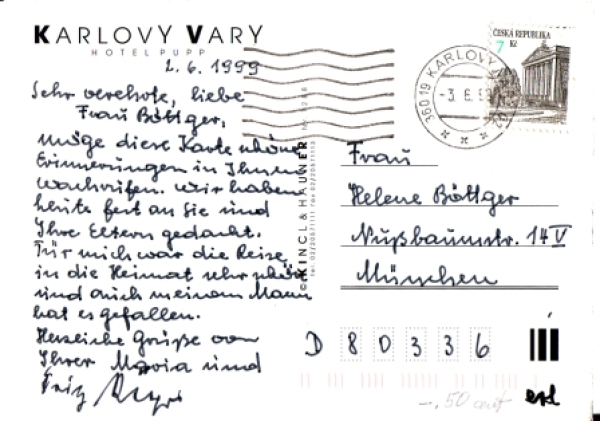 KARLOVY VARY
HOTEL PUPP
2.6.1999
Sehr verehrte, liebe
Frau Böttger,
möge diese Karte schöne
Erinnerungen in Ihnen
wachrufen. Wir haben
heute fest an Sie und
Ihre Eltern gedacht.
Für mich war die Reise
in die Heimat sehr schön
und auch meinem Mann
hat es gefallen.
Herzliche Grüße von
Ihrer Maria und
Fritz
© KINCL & HAUNER
ČESKÁ REPUBLIKA
7 Kč
360 19 KARLOVY
-3.6.
Frau
Helene Böttger
Nußbaumstr. 14 V
München
D 80336
-.50 cent
erl